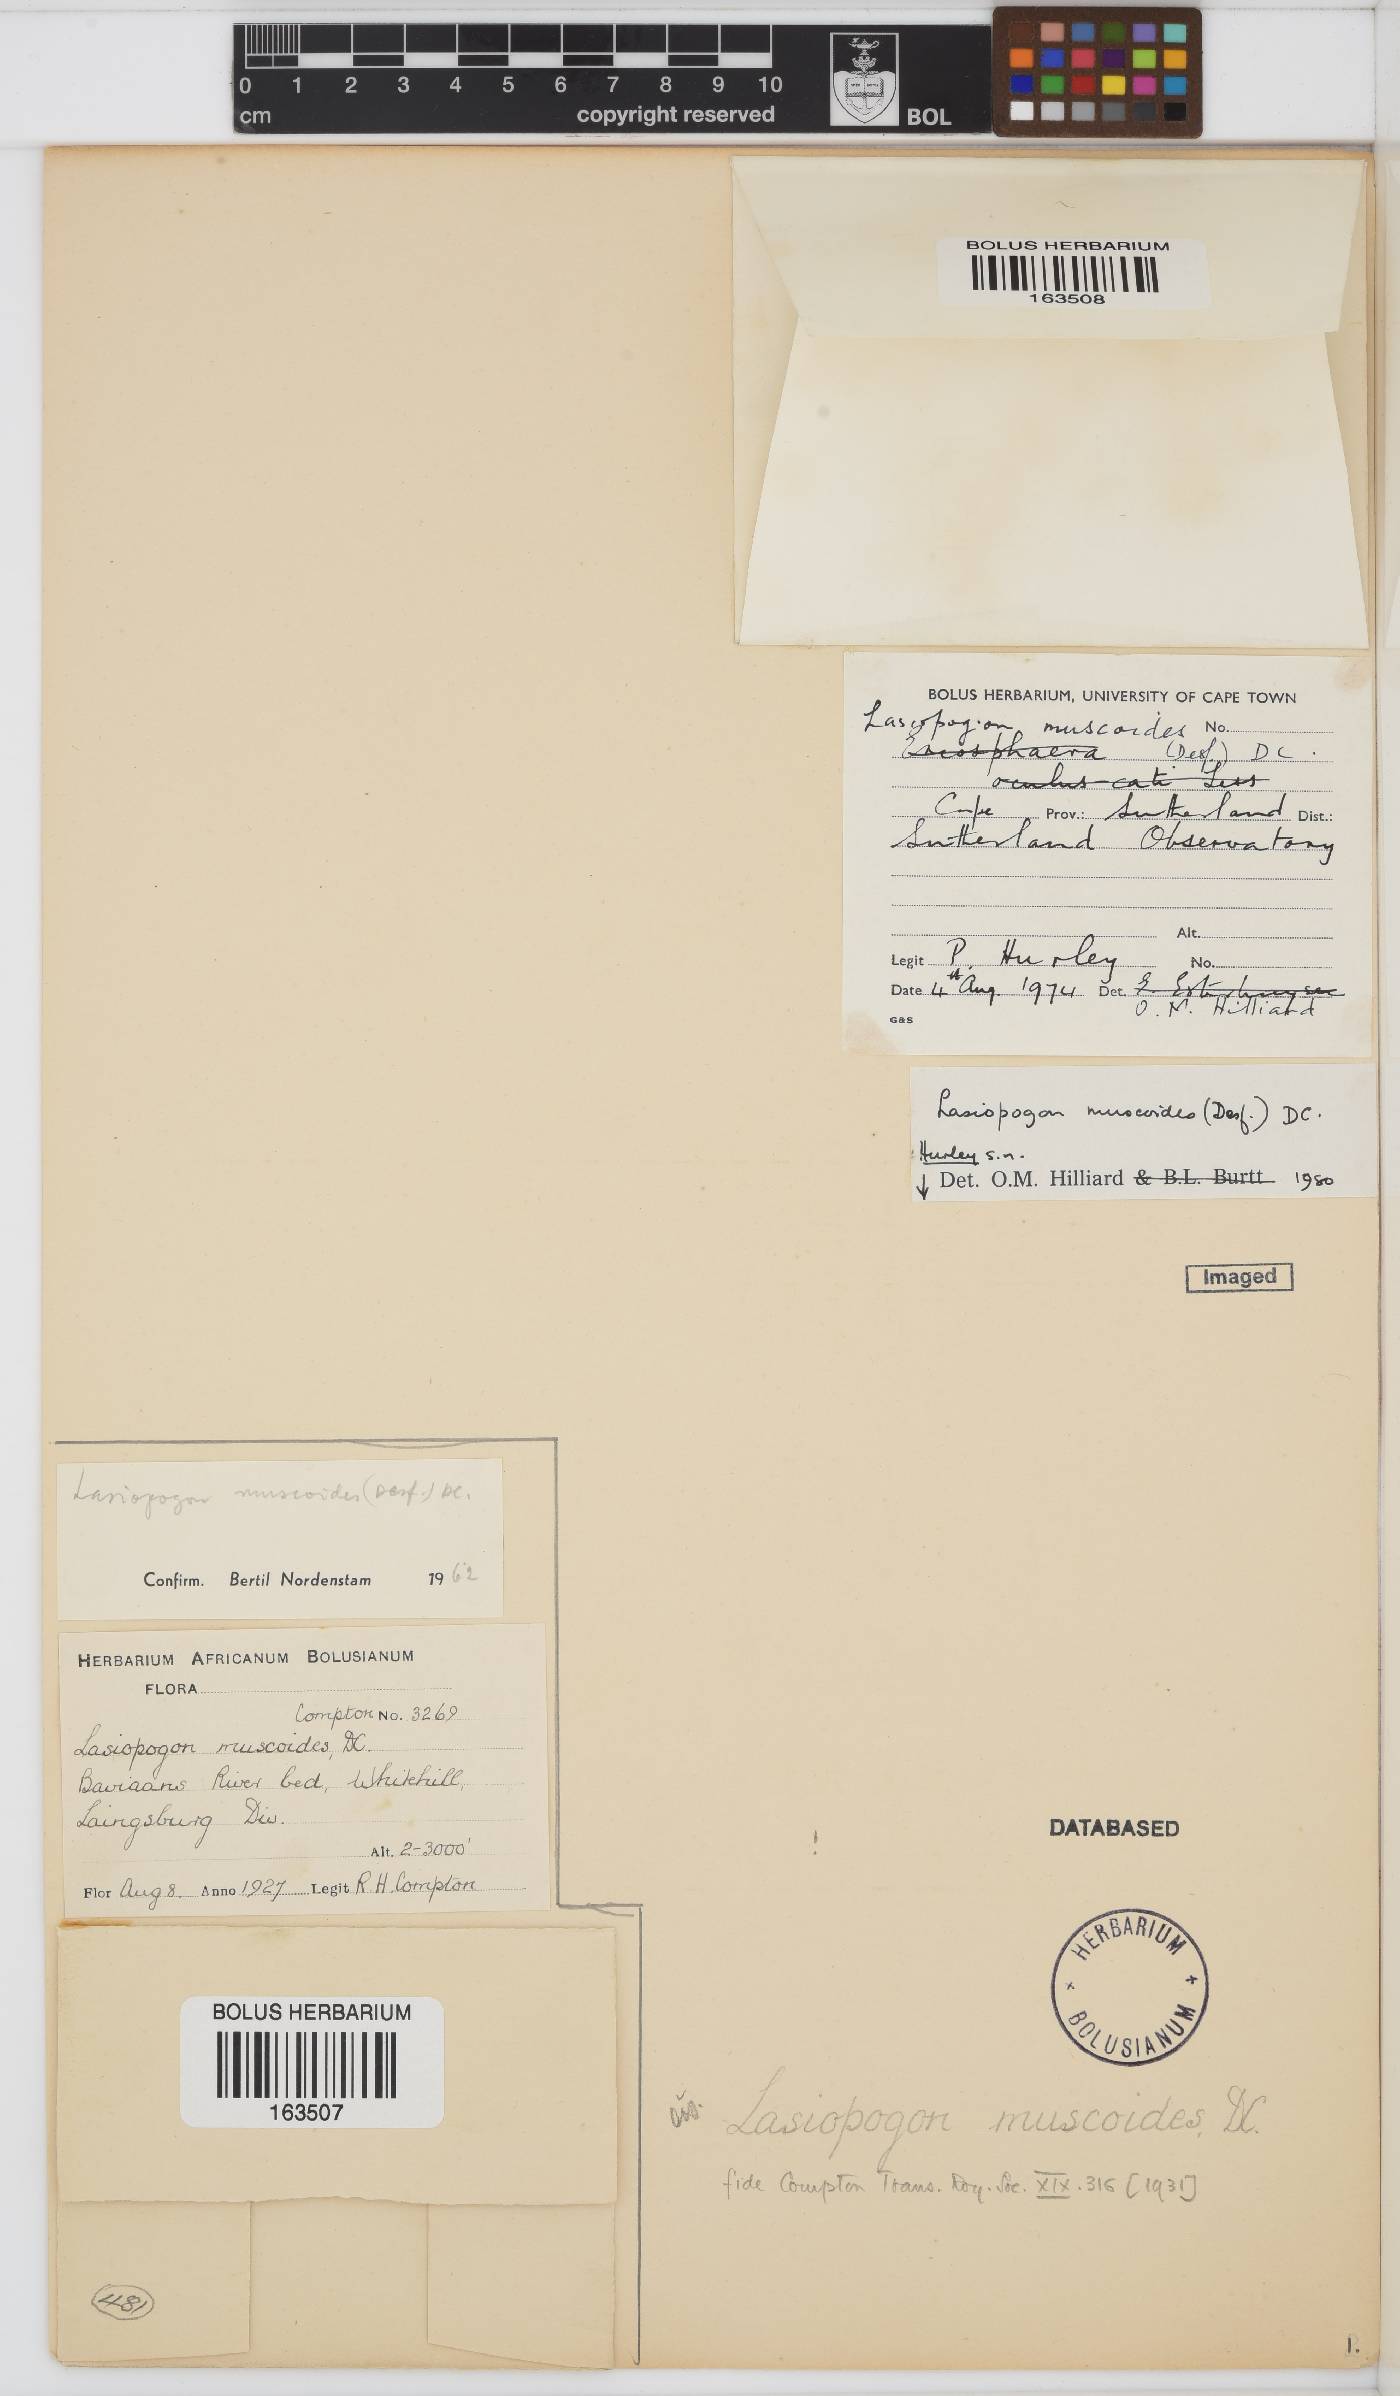 0 1 2 3 4 5 6 7 8 9 10
cm copyright reserved BOL
BOLUS HERBARIUM
163508
BOLUS HERBARIUM, UNIVERSITY OF CAPE TOWN
Lasiopogon muscoides No.
Eriosphaera (Desf.) DC.
oculus-cati Less
Cape Prov.: Sutherland Dist.:
Sutherland Observatory
Alt.
Legit P. Hurley No.
Date 4th Aug. 1974 Det. E.
O. M. Hilliard
G&S
Lasiopogon muscoides (Desf.) DC.
Hurley s.n.
↓ Det. O.M. Hilliard & B.L. Burtt 1980
Imaged
Lasiopogon muscoides (Desf.) DC.
Confirm. Bertil Nordenstam 1962
HERBARIUM AFRICANUM BOLUSIANUM
FLORA
Compton No. 3269
Lasiopogon muscoides, DC.
Baviaans River bed, Whitehill,
Laingsburg Div.
Alt. 2-3000'
Flor Aug 8. Anno 1927 Legit R H. Compton
DATABASED
!
HERBARIUM BOLUSIANUM
BOLUS HERBARIUM
163507
Lasiopogon muscoides, DC.
fide Compton Trans. Roy. Soc. XIX. 316 [1931]
481
1.